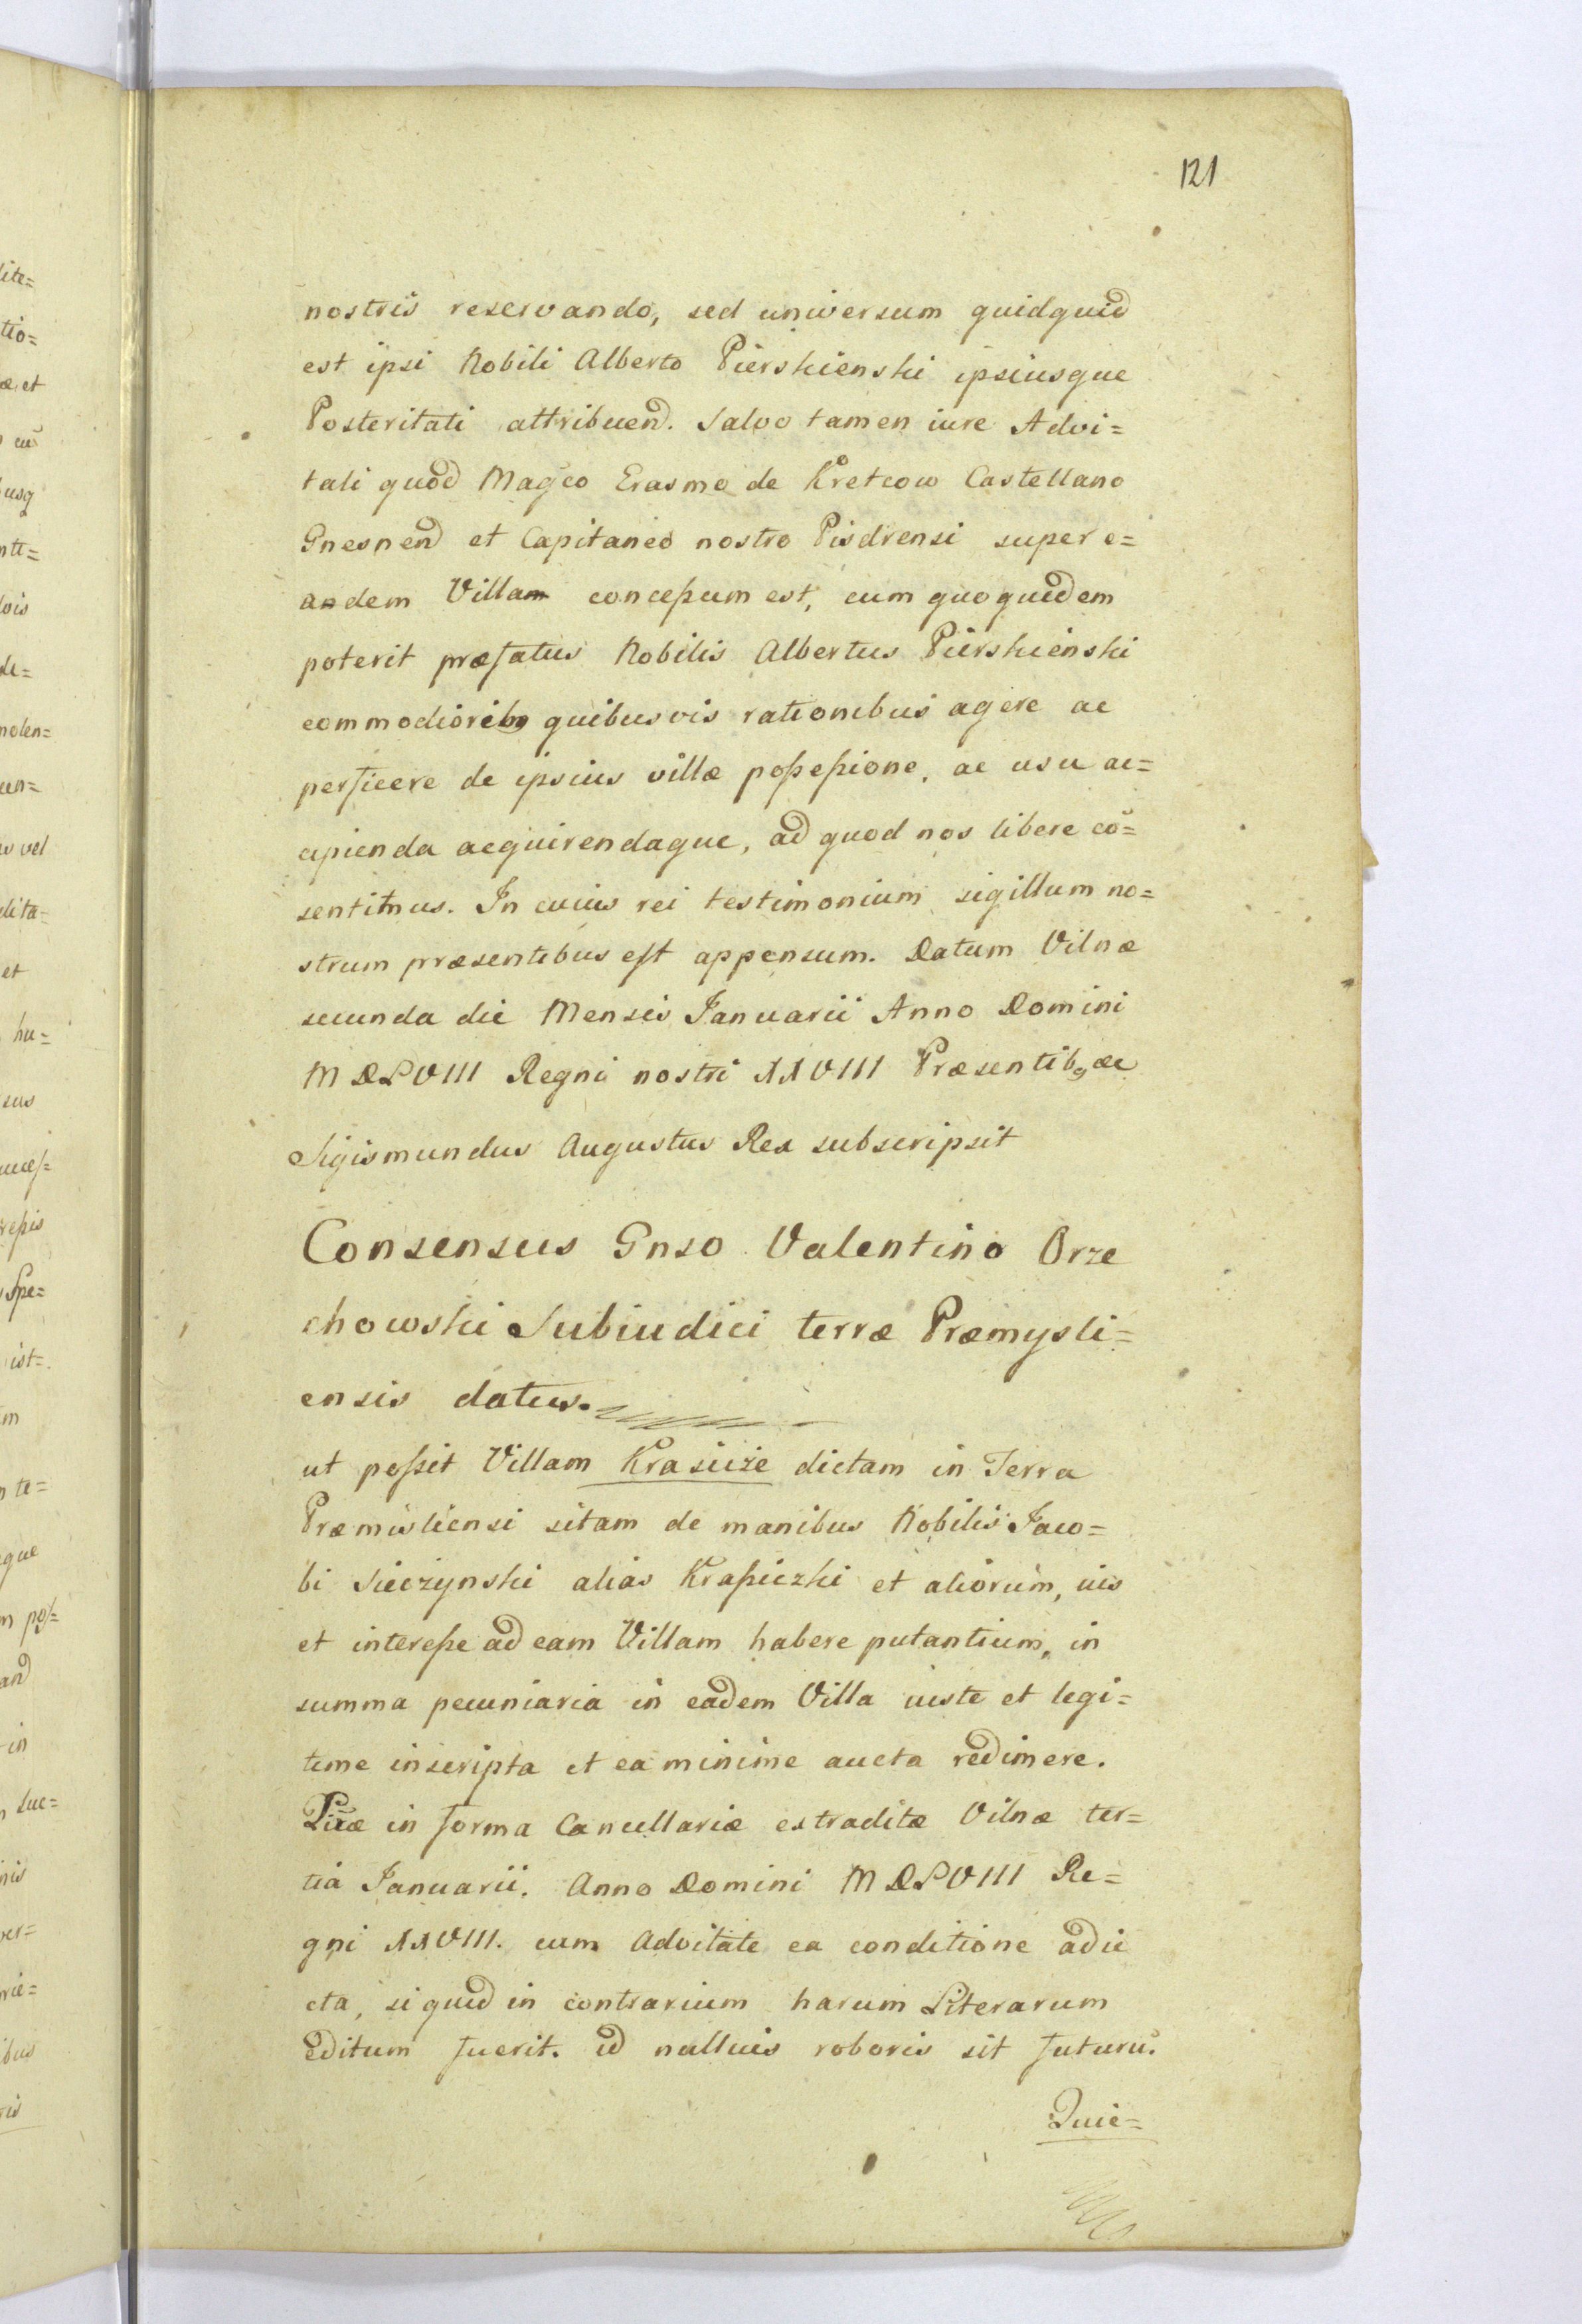 121
nostris reservando, sed universum quidquid
est ipsi Nobili Alberto Pierskienski ipsiusque
Posteritati attribuend. Salvo tamen iure Advi=
tali quod Magco Erasmo de Kretcow Castellano
Gnesnen et Capitaneo nostro Pisdrensi super e=
andem Villam concessum est, cum quoquidem
poterit præfatus Nobilis Albertus Pierskienski
commodiorib9 quibusvis rationibus agere ac
perficere de ipsius villæ possessione, ac usu ac=
cipienda acquirendaque, ad quod nos libere cō=
sentimus. In cuius rei testimonium sigillum no=
strum præsentibus est appensum. Datum Vilnæ
secunda die Mensis Januarii Anno Domini
MDLVIII Regni nostri XXVIII Præsentib9 &c
Sigismundus Augustus Rex subscripsit
Consensus Gnso Valentino Orze
chowski Subiudici terræ Præmysli=
ensis datus.
ut possit Villam Krasicze dictam in Terra
Præmisliensi sitam de manibus Nobilis Jaco=
bi Sieczynski alias Krassiczki et aliorum, ius
et interesse ad eam Villam habere putantium, in
summa pecuniaria in eadem Villa iuste et legi=
time inscripta et ea minime aucta redimere.
in forma Cancellariæ extraditæ Vilnæ ter=
tia Januarii. Anno Domini MDLVIII Re=
gni XXVIII. cum Advitate ea conditione adie
cta, si quid in contrarium harum Literarum
editum fuerit. id nullius roboris sit futurū.
Quie=